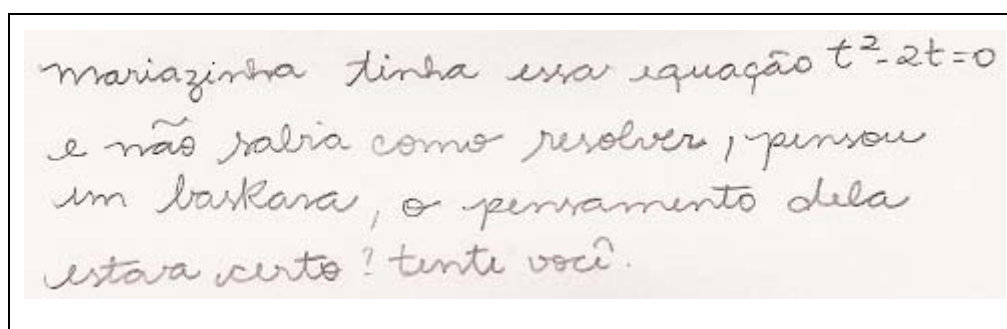 mariazinha tinha essa equação t²-2t=0
e não sabia como resolver, pensou
em baskara, o pensamento dela
estava certo? tente você.